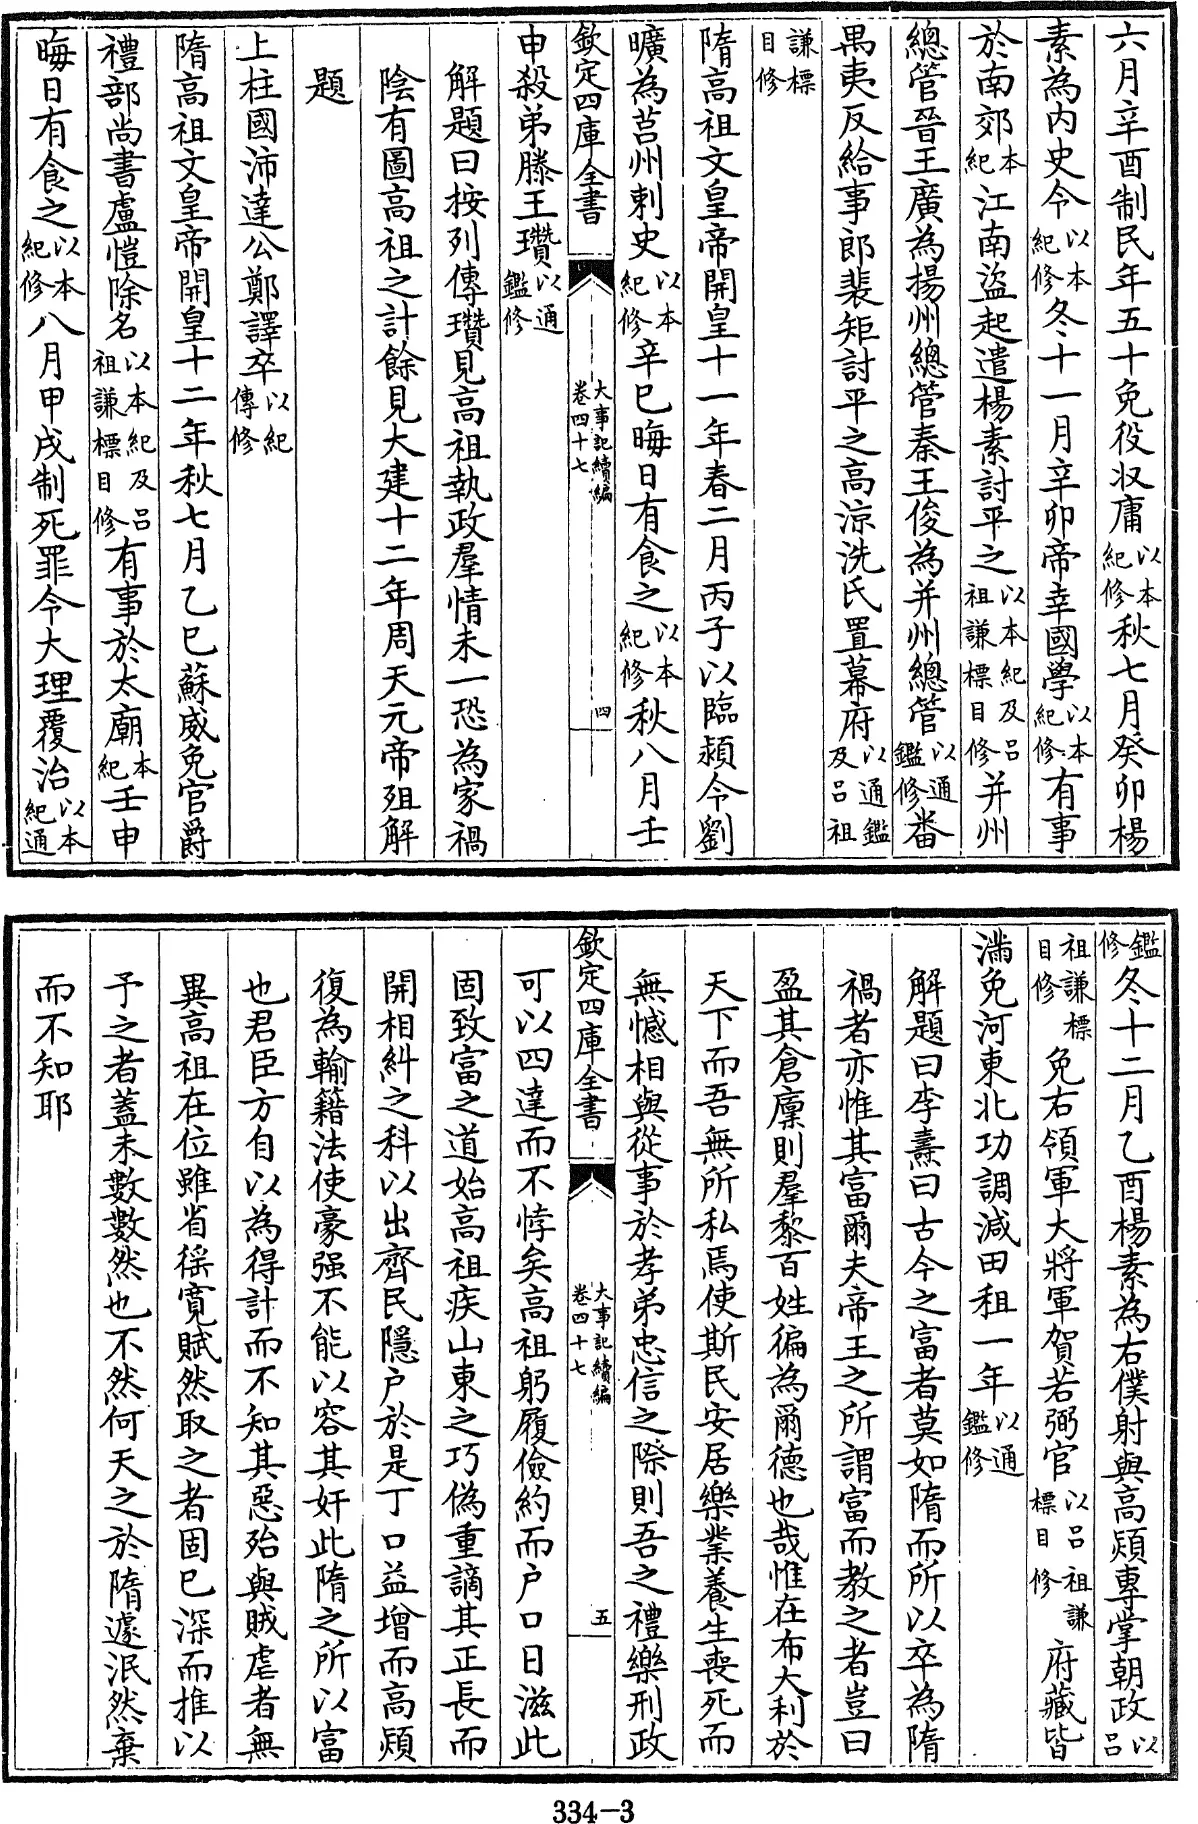 六月辛酉制民年五十免役收庸以本紀修秋七月癸卯楊
素為内史令以本紀修冬十一月辛卯帝幸國學以本紀修有事
於南郊本紀江南盜起遣楊素討平之以本紀及呂祖謙標目修并州
總管晉王廣為揚州總管秦王俊為并州總管以通鑑修番
禺夷反給事郎裴矩討平之高涼洗氏置幕府以通鑑及呂祖
謙標目修
隋高祖文皇帝開皇十一年春二月丙子以臨潁令劉
曠為莒州刺史以本紀修辛巳晦日有食之以本紀修秋八月壬
欽定四庫全書 大事記續編卷四十七 四
申殺弟滕王瓚以通鑑修
解題曰按列傳瓚見高祖執政羣情未一恐為家禍
陰有圖高祖之計餘見大建十二年周天元帝殂解
題
上柱國沛達公鄭譯卒以紀傳修
隋高祖文皇帝開皇十二年秋七月乙巳蘇威免官爵
禮部尚書盧愷除名以本紀及呂祖謙標目修有事於太廟本紀壬申
晦日有食之以本紀修八月甲戌制死罪令大理覆治以本紀通
鑑修冬十二月乙酉楊素為右僕射與高熲專掌朝政以呂
祖謙標目修免右領軍大將軍賀若弼官以呂祖謙標目修府藏皆
滿免河東北功調減田租一年以通鑑修
解題曰李燾曰古今之富者莫如隋而所以卒為隋
禍者亦惟其富爾夫帝王之所謂富而教之者豈曰
盈其倉廩則羣黎百姓徧為爾德也哉惟在布大利於
天下而吾無所私焉使斯民安居樂業養生喪死而
無憾相與從事於孝弟忠信之際則吾之禮樂刑政
欽定四庫全書 大事記續編卷四十七 五
可以四達而不悖矣高祖躬履儉約而户口日滋此
固致富之道始高祖疾山東之巧偽重謫其正長而
開相糾之科以出齊民隱户於是丁口益增而高熲
復為輸籍法使豪强不能以容其奸此隋之所以富
也君臣方自以為得計而不知其惡殆與賊虐者無
異高祖在位雖省徭寛賦然取之者固已深而推以
予之者蓋未數數然也不然何天之於隋遽泯然棄
而不知耶
334-3